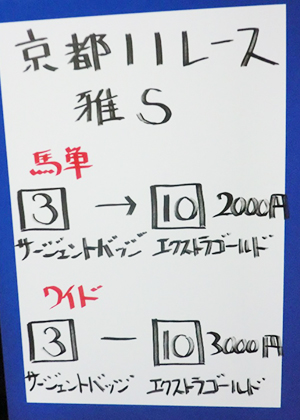 京都11レース
雅S
馬単
3 → 10 2000円
サージェントバッジ エクストラゴールド
ワイド
3 － 10 3000円
サージェントバッジ エクストラゴールド